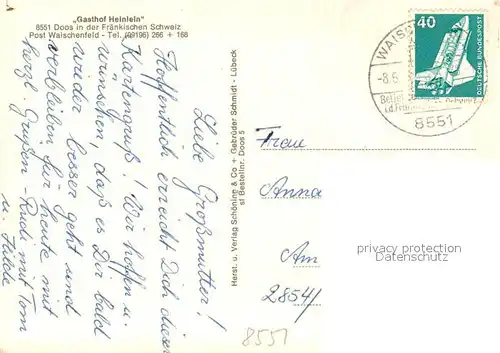 „Gasthof Heinlein"
8551 Doos in der Fränkischen Schweiz
Post Waischenfeld - Tel. (09196) 266 + 168
Liebe Großmutter!
Hoffentlich erreicht Dich dieser
Kartengruß! Wir hoffen u.
wünschen, daß es Dir bald
wieder besser geht und
verbleiben für heute mit
herzl. Grüßen - Rudi mit Tom
u. Hilde
Herst. u. Verlag Schöning & Co + Gebrüder Schmidt - Lübeck
st Bestellnr. Doos 5
40
DEUTSCHE BUNDESPOST
WAISC
-8.6
8551
Frau
Anna
Am
2854/
8551
privacy protection
watermark